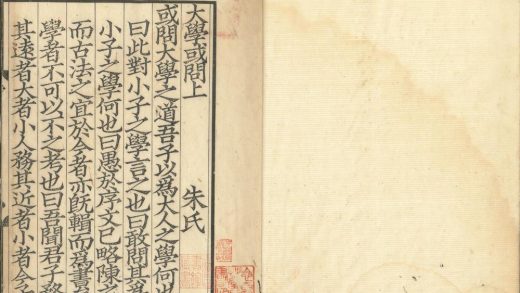 大學或問上
朱氏
或問大學之道吾子以為大人之學何也
曰此對小子之學言之也曰敢問其爲
小子之學何也曰愚於序文已略陳之
而古法之宜於今者亦旣輯而爲書
學者不可以不之考也曰吾聞君子務
其遠者大者小人務其近者小者今